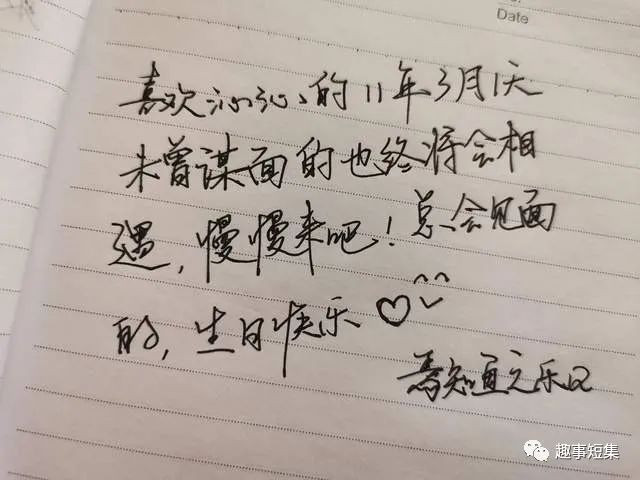 Date
喜欢沁沁的11年3月1天
未曾谋面的也终将会相
遇,慢慢来吧!总会见面
的,生日快乐
焉知通之乐
趣事短集